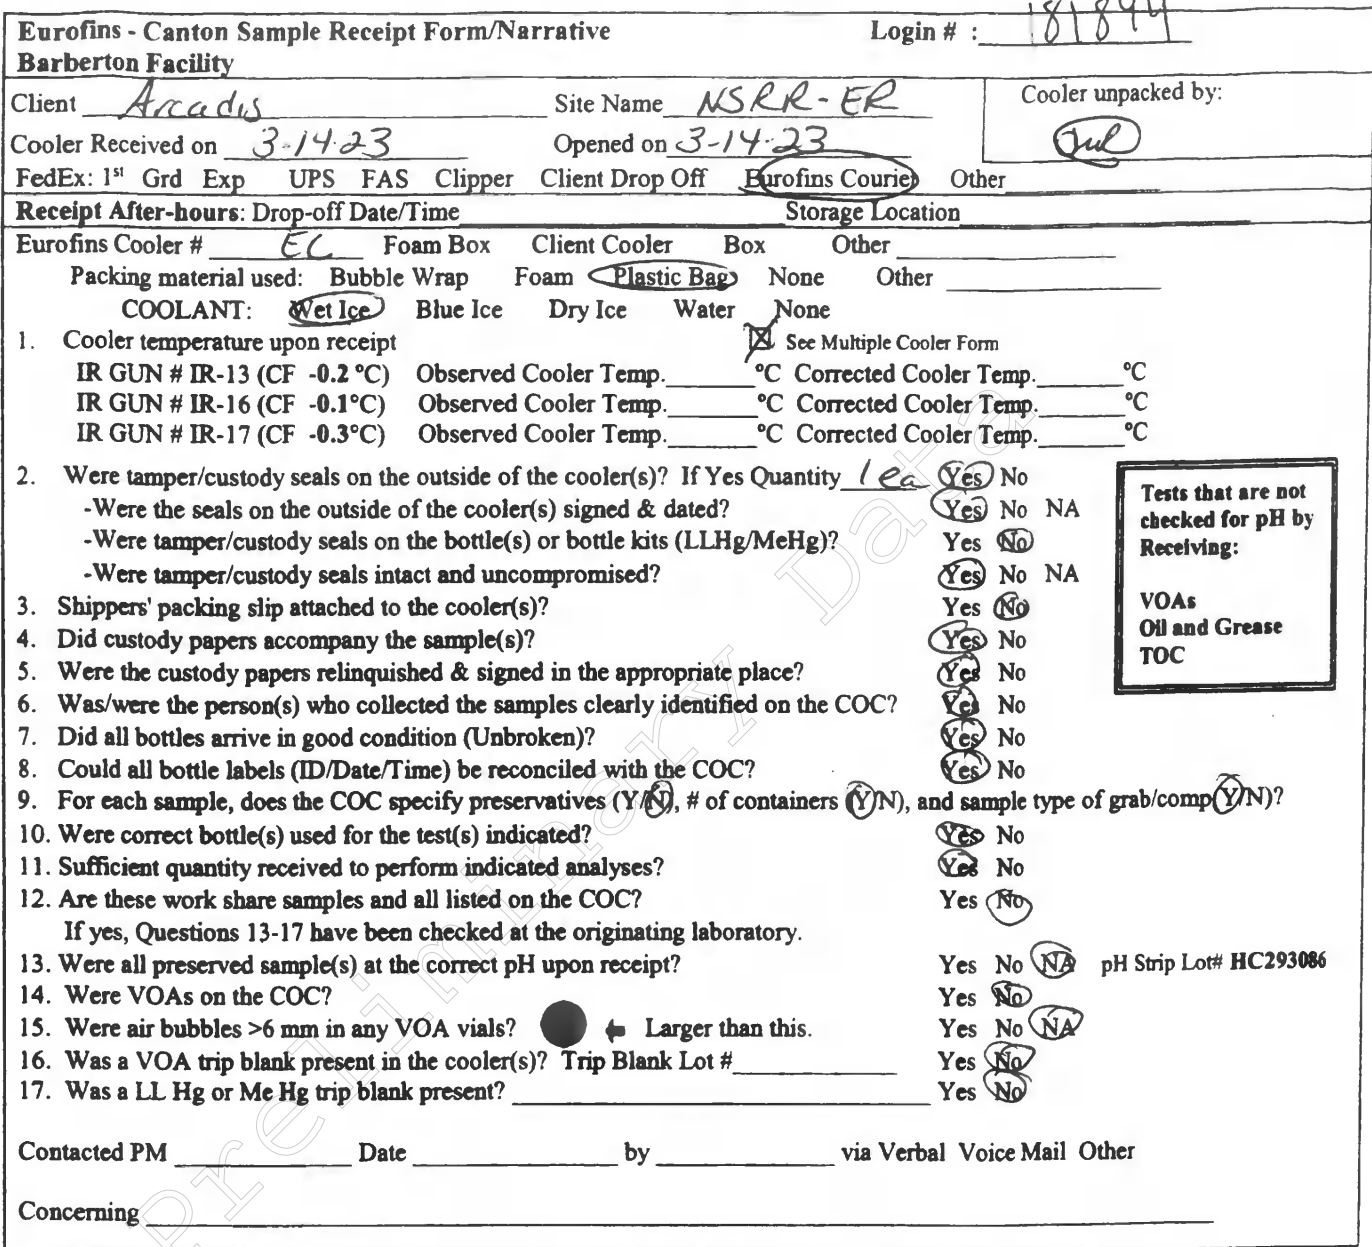 Eurofins - Canton Sample Receipt Form/Narrative Login # : 181844
Barberton Facility
Client Arcadis Site Name NSRR-ER Cooler unpacked by:
Cooler Received on 3-14-23 Opened on 3-14-23
FedEx: 1st Grd Exp UPS FAS Clipper Client Drop Off Eurofins Courier Other
Receipt After-hours: Drop-off Date/Time Storage Location
Eurofins Cooler # EC Foam Box Client Cooler Box Other
Packing material used: Bubble Wrap Foam Plastic Bag None Other
COOLANT: Wet Ice Blue Ice Dry Ice Water None
1. Cooler temperature upon receipt See Multiple Cooler Form
IR GUN # IR-13 (CF -0.2 °C) Observed Cooler Temp. °C Corrected Cooler Temp. °C
IR GUN # IR-16 (CF -0.1°C) Observed Cooler Temp. °C Corrected Cooler Temp. °C
IR GUN # IR-17 (CF -0.3°C) Observed Cooler Temp. °C Corrected Cooler Temp. °C
2. Were tamper/custody seals on the outside of the cooler(s)? If Yes Quantity 1 ea Yes No
-Were the seals on the outside of the cooler(s) signed & dated? Yes No NA
-Were tamper/custody seals on the bottle(s) or bottle kits (LLHg/MeHg)? Yes No
-Were tamper/custody seals intact and uncompromised? Yes No NA
3. Shippers' packing slip attached to the cooler(s)? Yes No
4. Did custody papers accompany the sample(s)? Yes No
5. Were the custody papers relinquished & signed in the appropriate place? Yes No
6. Was/were the person(s) who collected the samples clearly identified on the COC? Yes No
7. Did all bottles arrive in good condition (Unbroken)? Yes No
8. Could all bottle labels (ID/Date/Time) be reconciled with the COC? Yes No
Tests that are not
checked for pH by
Receiving:
VOAs
Oil and Grease
TOC
9. For each sample, does the COC specify preservatives (Y/N), # of containers (Y/N), and sample type of grab/comp(Y/N)?
10. Were correct bottle(s) used for the test(s) indicated? Yes No
11. Sufficient quantity received to perform indicated analyses? Yes No
12. Are these work share samples and all listed on the COC? Yes No
If yes, Questions 13-17 have been checked at the originating laboratory.
13. Were all preserved sample(s) at the correct pH upon receipt? Yes No NA pH Strip Lot# HC293086
14. Were VOAs on the COC? Yes No
15. Were air bubbles >6 mm in any VOA vials? Larger than this. Yes No NA
16. Was a VOA trip blank present in the cooler(s)? Trip Blank Lot # Yes No
17. Was a LL Hg or Me Hg trip blank present? Yes No
Contacted PM Date by via Verbal Voice Mail Other
Concerning
Preliminary Data